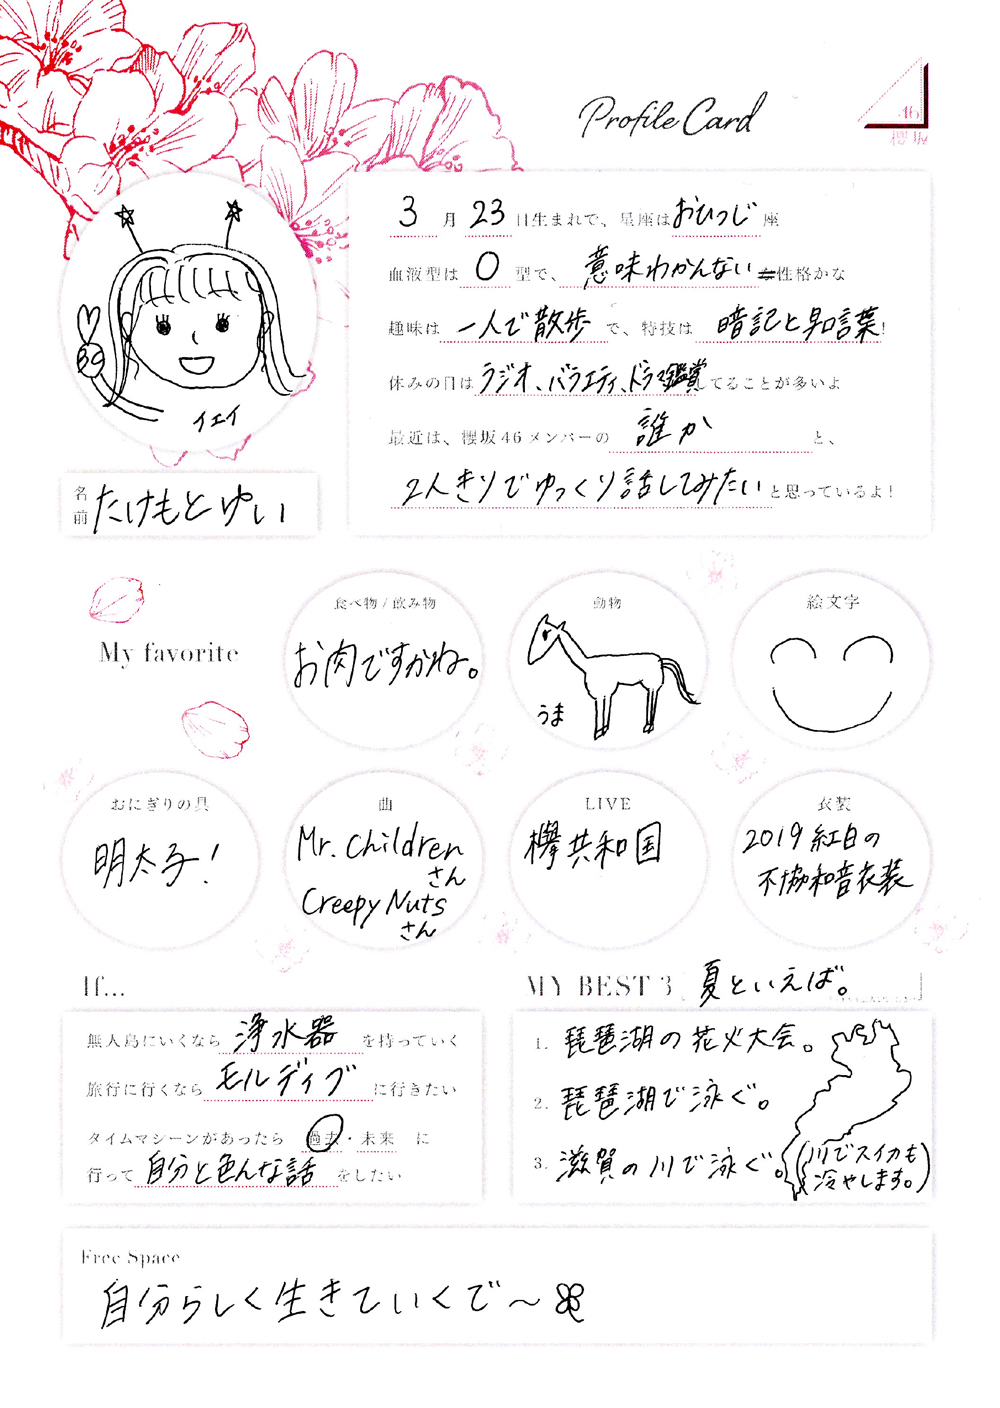 Profile Card
46
櫻坂
3月23日生まれで、星座はおひつじ座
血液型はO型で、意味わかんない性格かな
趣味は一人で散歩で、特技は暗記と早口言葉!
休みの日はラジオ、バラエティ、ドラマ鑑賞してることが多いよ
最近は、櫻坂46メンバーの誰かと、
2人きりでゆっくり話してみたいと思っているよ!
イエイ
名前 たけもとゆい
My favorite
食べ物/飲み物
お肉ですかね。
動物
うま
絵文字
おにぎりの具
明太子!
曲
Mr.Children
さん
Creepy Nuts
さん
LIVE
欅共和国
衣装
2019紅白の
不協和音衣装
If...
無人島にいくなら浄水器を持っていく
旅行に行くならモルディブに行きたい
タイムマシーンがあったら 過去・未来 に
行って自分と色んな話をしたい
MY BEST 3 夏といえば。
1. 琵琶湖の花火大会。
2. 琵琶湖で泳ぐ。
3. 滋賀の川で泳ぐ。(川でスイカも
冷やします。)
Free Space
自分らしく生きていくで〜